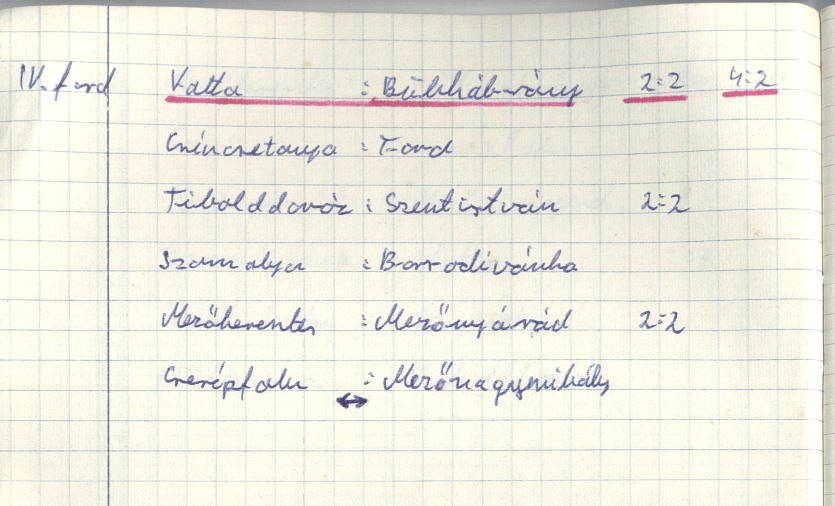 IV. ford Vatta : Bükkábrány 2:2 4:2
Csincsetanya : Tard
Tibolddaróc : Szentistván 2:2
Szomolya : Borsodivánka
Mezőkeresztes : Mezőnyárád 2:2
Cserépfalu : Mezőnagymihály